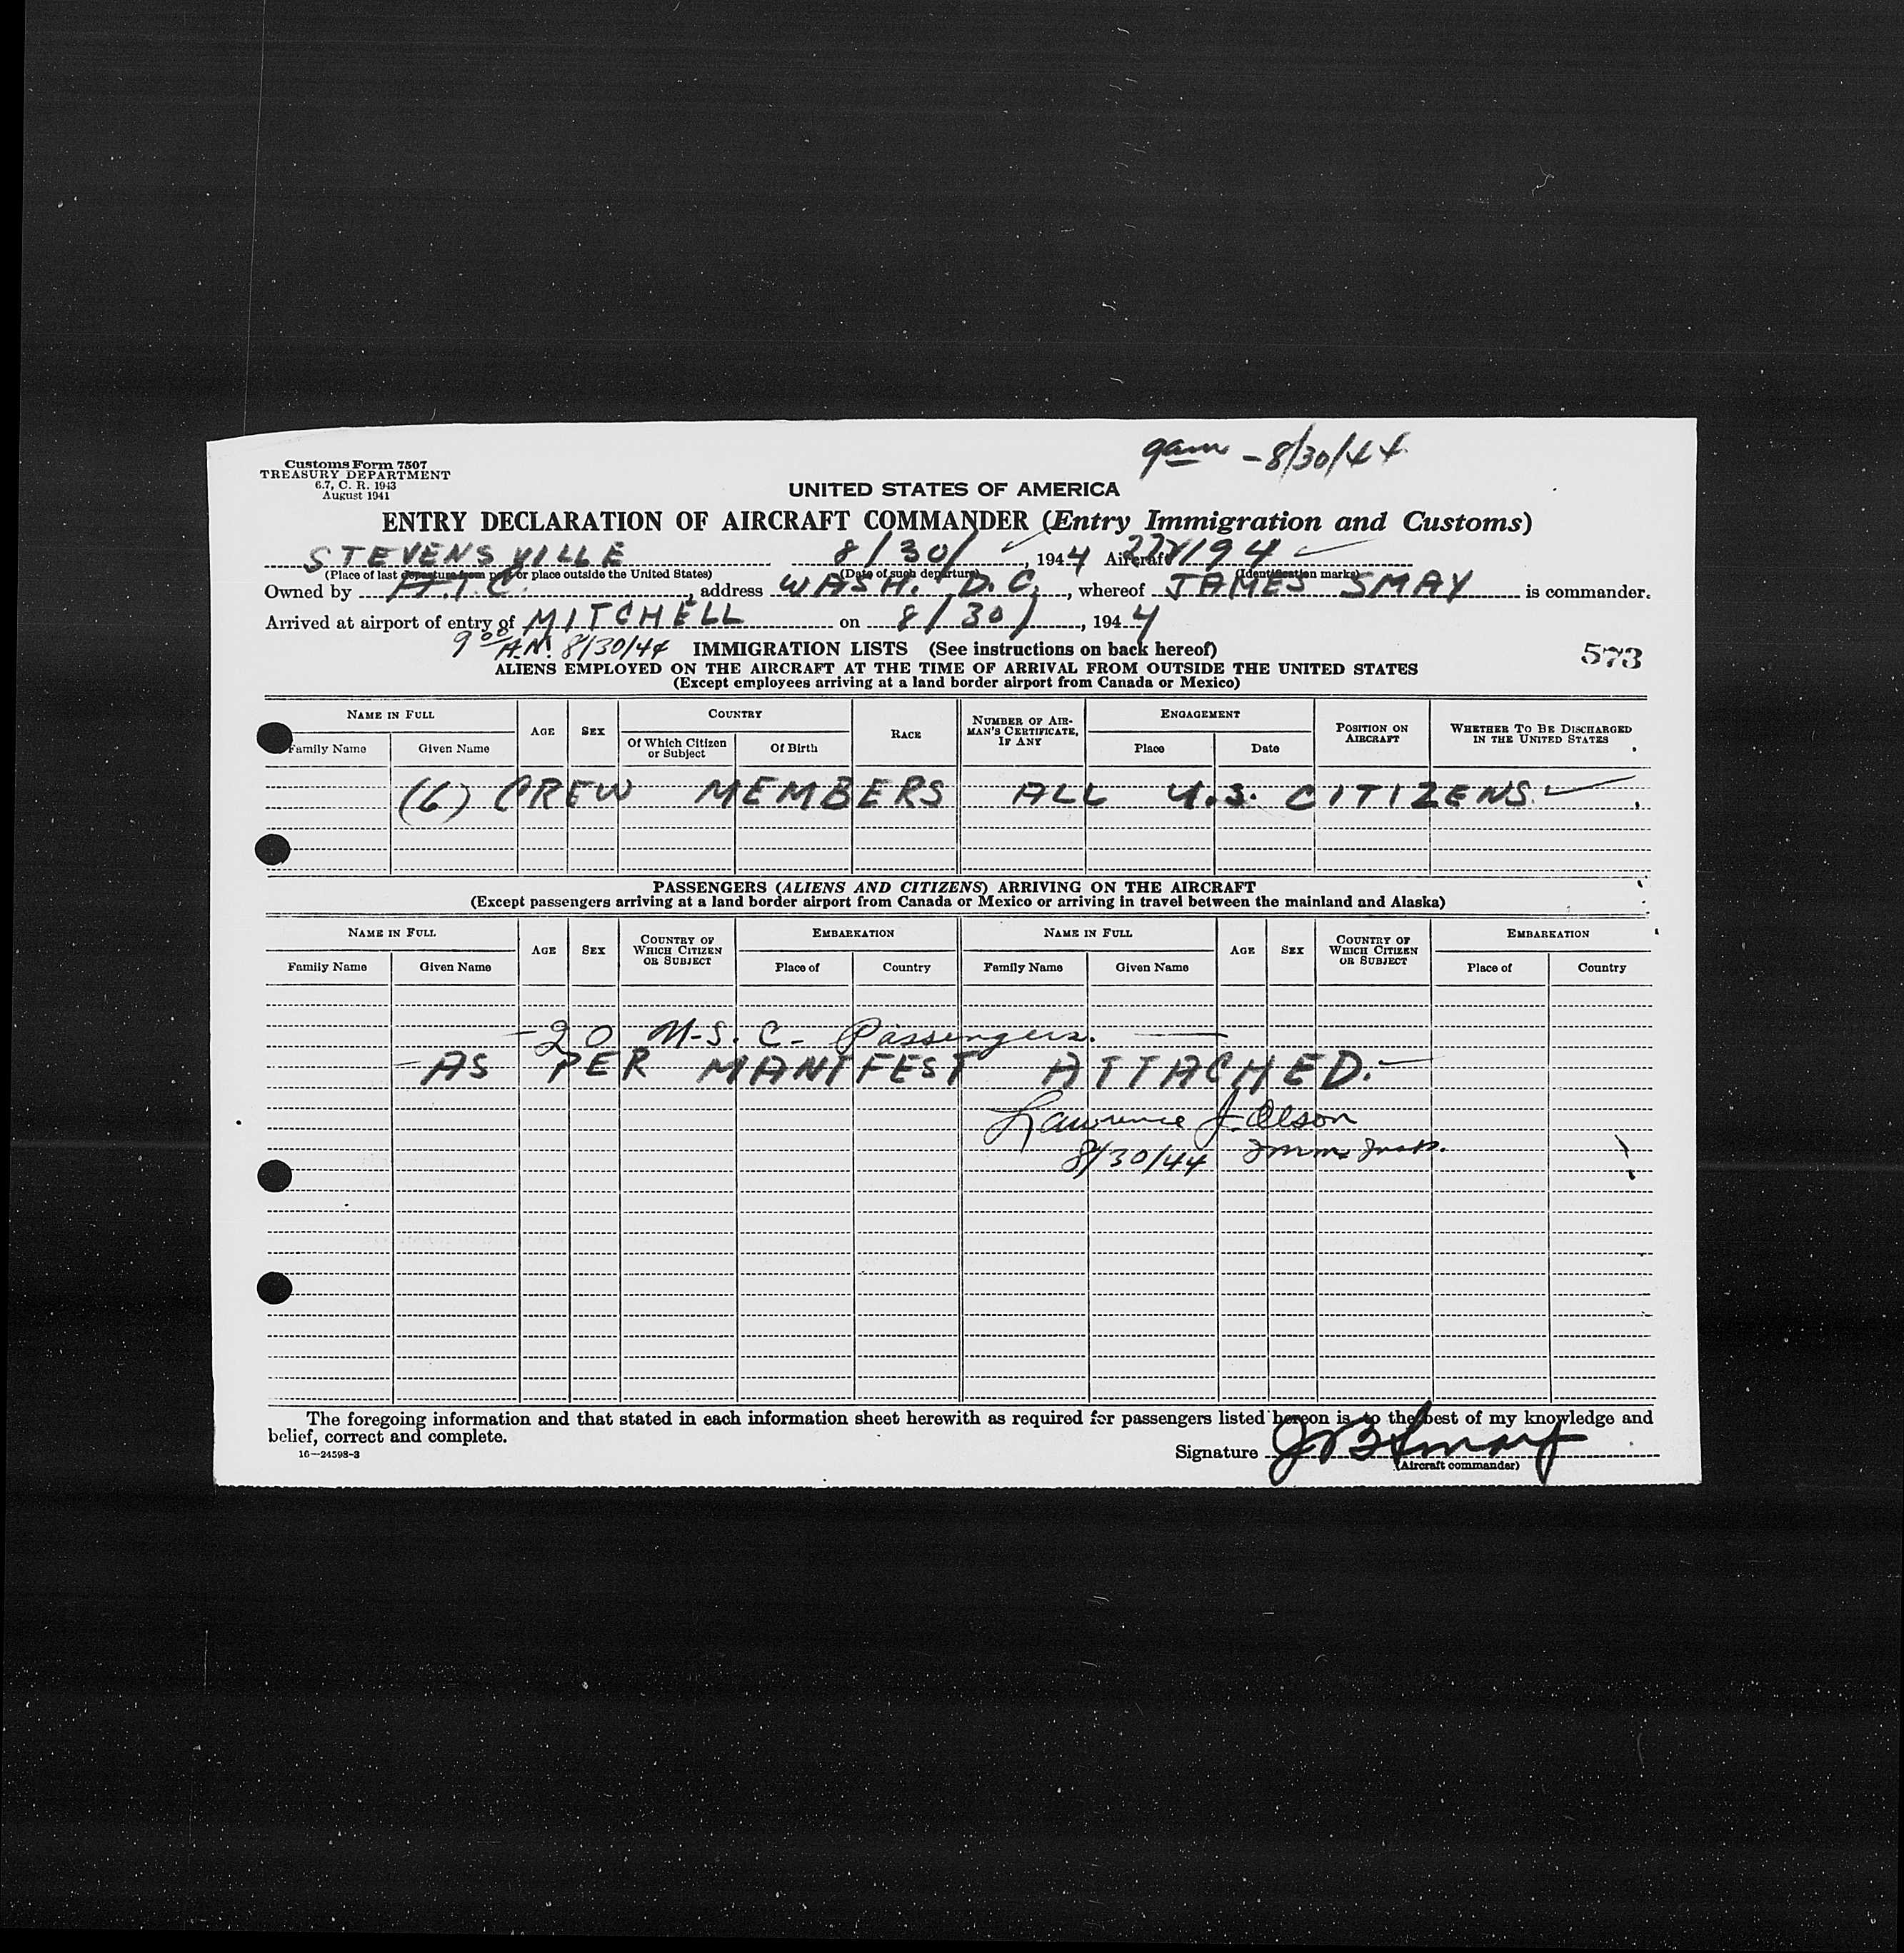 9am - 8/30/44
Customs Form 7507
TREASURY DEPARTMENT
6.7, C. R. 1943
August 1941
UNITED STATES OF AMERICA
ENTRY DECLARATION OF AIRCRAFT COMMANDER (Entry Immigration and Customs)
STEVENSVILLE 8/30/ ✓, 1944 Aircraft 272194 ✓
(Place of last departure from port or place outside the United States) (Date of such departure) (Identification marks)
Owned by A.T.C., address WASH. D.C., whereof JAMES SMAY is commander.
Arrived at airport of entry of MITCHELL on 8/30/, 1944
9 00 A.M. 8/30/44 IMMIGRATION LISTS (See instructions on back hereof) 573
ALIENS EMPLOYED ON THE AIRCRAFT AT THE TIME OF ARRIVAL FROM OUTSIDE THE UNITED STATES
(Except employees arriving at a land border airport from Canada or Mexico)
NAME IN FULL AGE SEX COUNTRY RACE NUMBER OF AIRMAN'S CERTIFICATE, IF ANY ENGAGEMENT POSITION ON AIRCRAFT WHETHER TO BE DISCHARGED IN THE UNITED STATES
Family Name Given Name Of Which Citizen or Subject Of Birth Place Date
(6) CREW MEMBERS ALL U.S. CITIZENS. ✓
PASSENGERS (ALIENS AND CITIZENS) ARRIVING ON THE AIRCRAFT
(Except passengers arriving at a land border airport from Canada or Mexico or arriving in travel between the mainland and Alaska)
NAME IN FULL AGE SEX COUNTRY OF WHICH CITIZEN OR SUBJECT EMBARKATION NAME IN FULL AGE SEX COUNTRY OF WHICH CITIZEN OR SUBJECT EMBARKATION
Family Name Given Name Place of Country Family Name Given Name Place of Country
- 20 U.S.C. Passengers. -
- AS PER MANIFEST ATTACHED. -
Lawrence J. Olson
8/30/44 Imm. Insp.
The foregoing information and that stated in each information sheet herewith as required for passengers listed hereon is to the best of my knowledge and
belief, correct and complete.
16—24598-3
Signature J B Smay
(Aircraft commander)